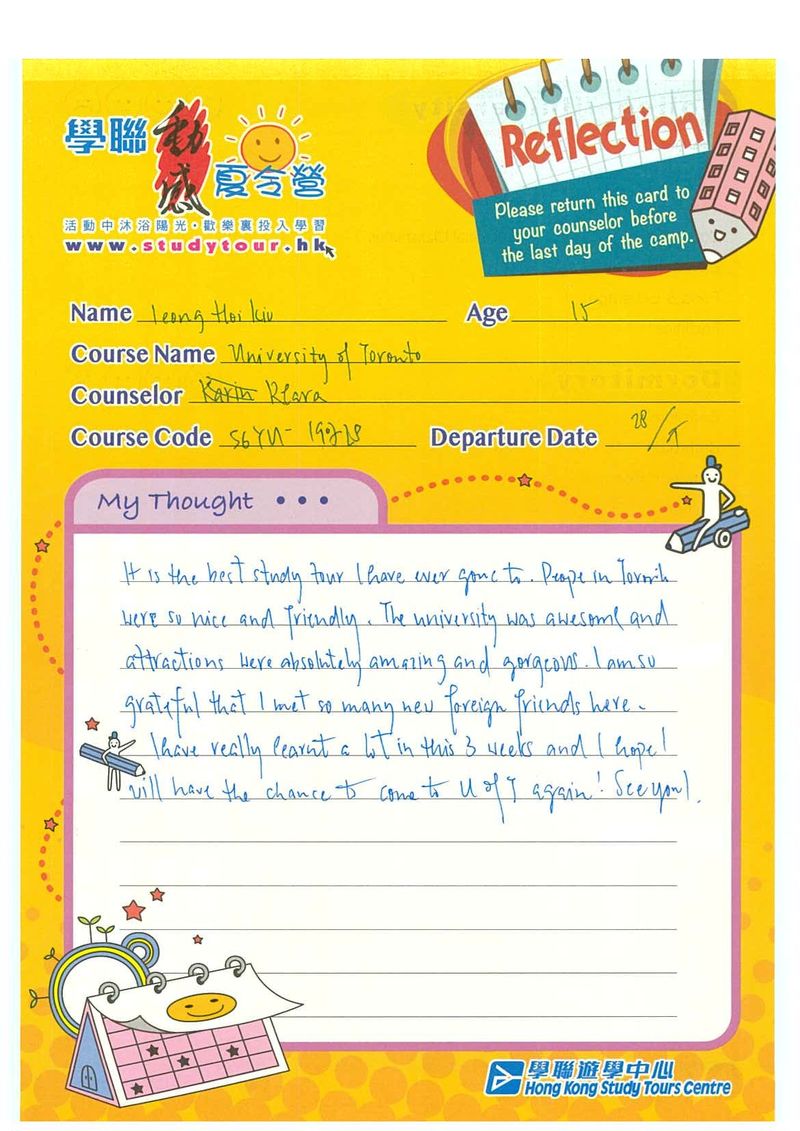 學聯 動感 夏令營
活動中沐浴陽光·歡樂裏投入學習
www.studytour.hk
Reflection
Please return this card to
your counselor before
the last day of the camp.
Name Leong Hoi Kiu Age 15
Course Name University of Toronto
Counselor Karin Klara
Course Code Departure Date 28/
My Thought • • •
It is the best study tour I have ever gone to. Peope in
were so nice and friendly. The university was awesome and
attractions were absolutely amazing and gorgeous. I am so
grateful that I met so many new foreign friends here.
I have really learnt a lot in this 3 weeks and I hope I
will have the chance to come to U of T again! See you!
學聯遊學中心
Hong Kong Study Tours Centre